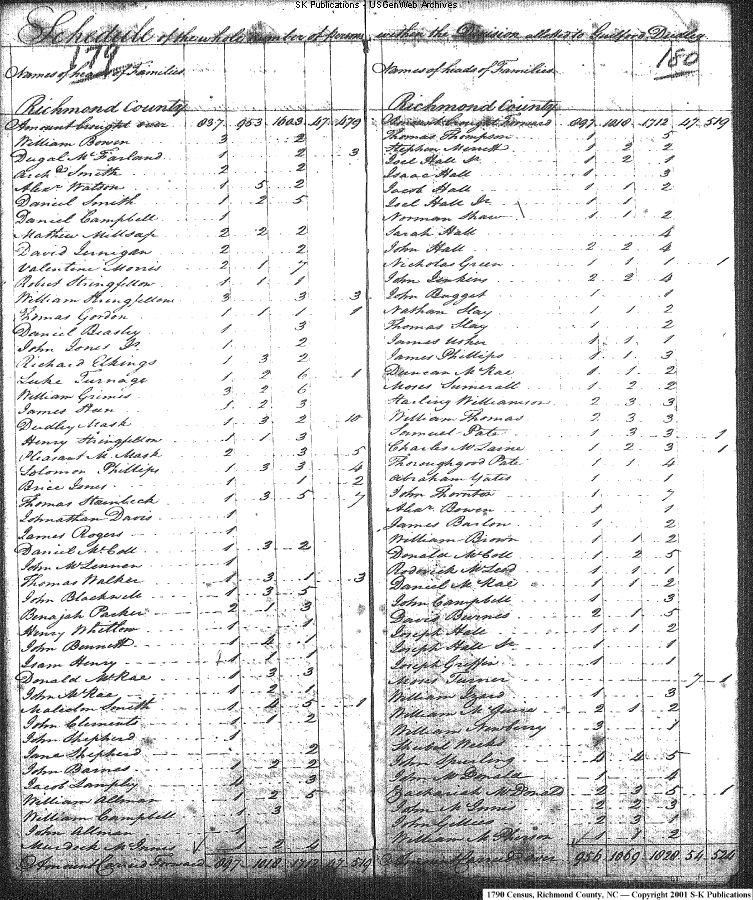 SK Publications - USGenWeb Archives
Schedule of the whole number of persons within the Division allotted to Guilford Dudley
179
Names of heads of Families
Richmond County
Amount brought over 837 953 1603 47 479
William Bowen 3 2
Dugal McFarland 1 2 3
Richd Smith 2 2
Alexr Watson 1 5 2
Daniel Smith 1 2 5
Daniel Campbell 1
Mathew Millsap 2 2 2
David Jernigan 2 2
Valentine Morris 2 1 7
Robert Stringfellow 1 1 1
William Stringfellow 3 3 3
Thomas Gordon 1 1 1 1
Daniel Beasley 1 3
John Jones Jr 1 2
Richard Elkings 1 3 2
Luke Turnage 1 2 6 1
William Grimes 3 2 6
James 1 2 3
Dudley Mask 1 3 2 10
Henry Stringfellow 1 1 3
Pleasant M Mask 2 3 5
Solomon Phillips 1 3 3 4
Brice Jones 1 1 2
Thomas Stanback 1 3 5 7
Johnathan Davis 1
James Rogers 1
Daniel McColl 1 3 2
John McLennan 1
Thomas Walker 1 3 1 3
John Blackwell 1 3 5
Benajah Packer 2 1 3
Henry Whitlow 1 1
John Bennett 1 4 1
Isam Henry 1 1 1
Donald McRae 1 3 3
John McRae 1 2 1
Malcolm Smith 1 4 5 1
John Clements 1 1 2
John Shepherd 1
Jane Shepherd 2
John Barnes 1 2 2
Jacob Lampley 4 3
William Allman 1 2 5
William Campbell 1 3
John Allman 1
Murdoch McInnis 1 2 4
Amount Carried Forward 897 1018 1712 47 519
180
Names of heads of Families
Richmond County
Amount brought Forward 897 1018 1712 47 519
Thomas Thompson 1 5
Stephen 1 2 2
Joel Hall Sr 1 2 1
Isaac Hall 1 3
Jacob Hall 1 1 2
Joel Hall Jr 1 1
Norman Shaw 1 1 2
Sarah Hall 4
John Hall 2 2 4
Nicholas Green 1 1 1 1
John Jenkins 2 2 4
John Bugget 1
Nathan Slay 1 1 2
Thomas Slay 1 2
James Usher 1 1 1
James Phillips 1 1 3
Duncan McRae 1 1 2
Moses Sumerall 1 2 2
Starling Williamson 2 3 3
William Thomas 2 3 3
Samuel Pate 1 3 3 1
Charles McLaine 1 2 3 1
Thoroughgood Pate 1 1 4
Abraham Yates 1 1
John Thornton 1 7
Alexr Bowen 1 1
James Barlow 1 2
William Brown 1 1 2
Donald McColl 1 2 5
Roderick McLeod 1 1 1
Daniel McRae 1 1 2
John Campbell 1 3
David Burnes 2 1 5
Joseph Hall 1 1 2
Joseph Hall Sr 1 1
Joseph Griffin 1 1
Moses Turner 7 1
William Izard 1 3
William McGuire 2 1 2
William Newberry 3 1
Weeks
John Spurling 4 4 5
John McDonald 1 4
Zachariah McDonald 2 3 5 1
John McInnes 2 2 3
John Gillies 2 3 1
William McPherson 1 1 2
Amount Carried over 956 1069 1828 54 524
1790 Census, Richmond County, NC — Copyright 2001 S-K Publications